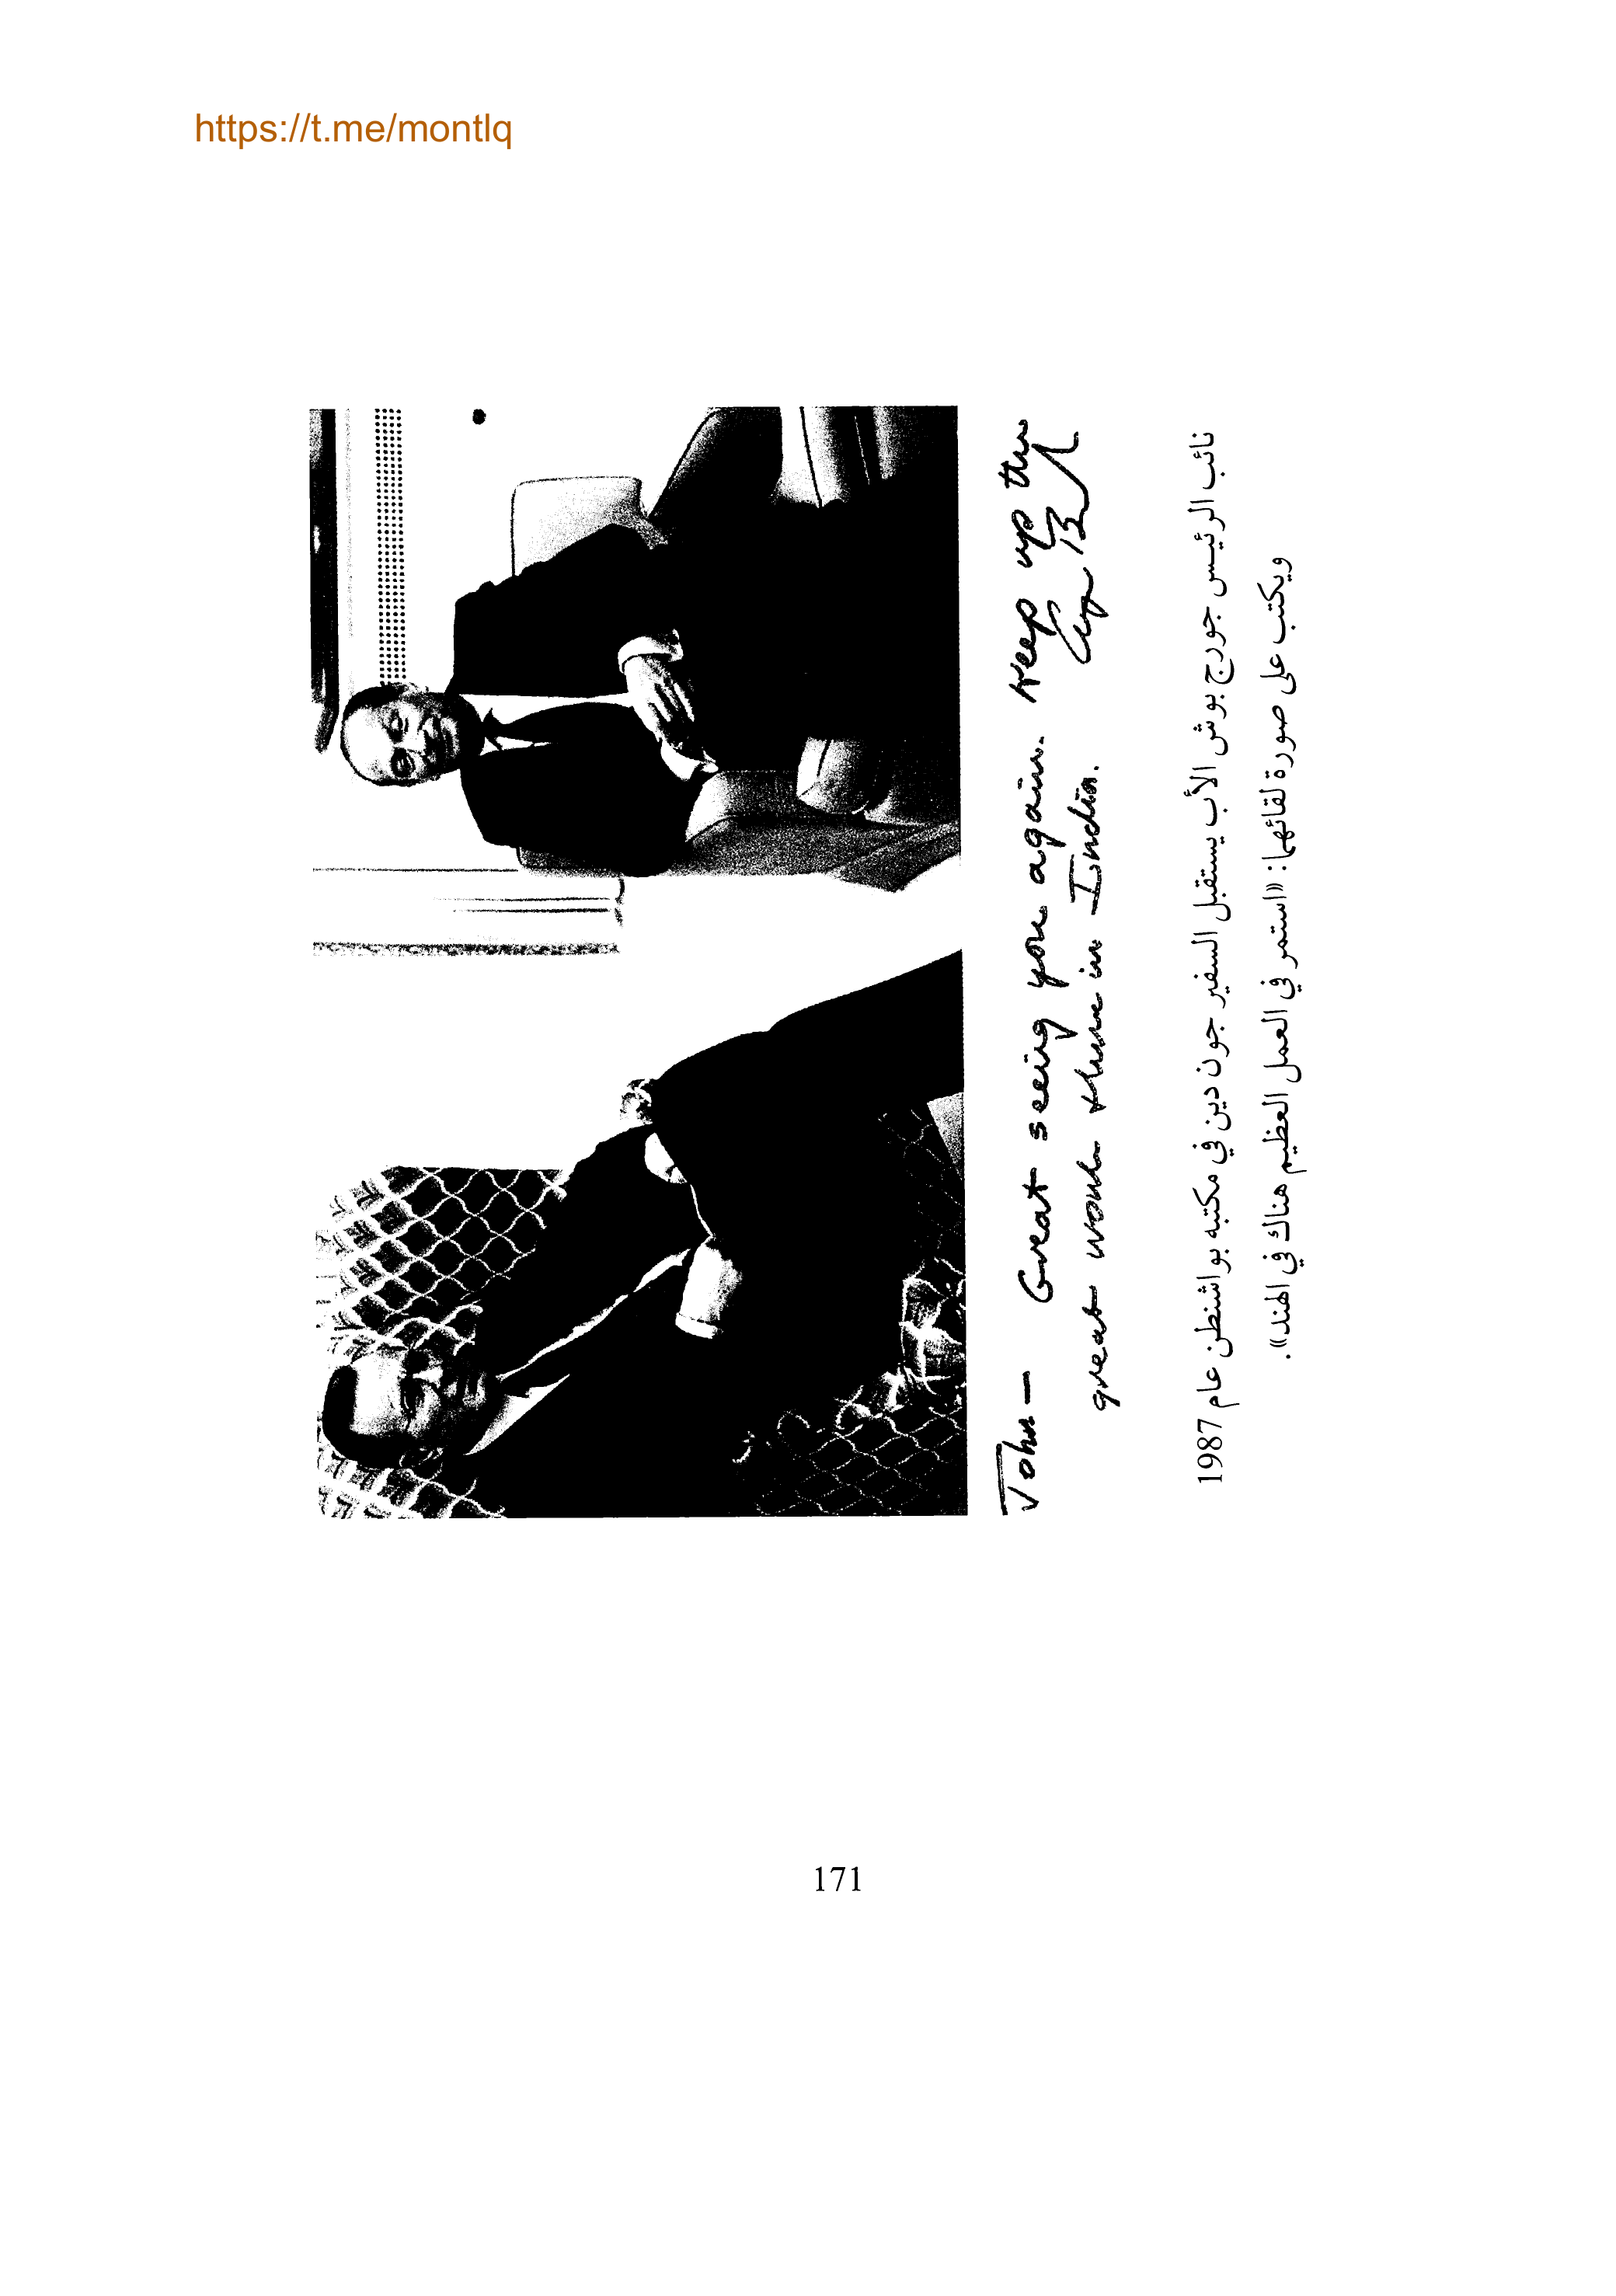 https://t.me/montlq
John — Great seeing you again. Keep up the
great work there in India.
نائب الرئيس جورج بوش الأب يستقبل السفير جون دين في مكتبه بواشنطن عام 1987
ويكتب على صورة لقائهما: «استمر في العمل العظيم هناك في الهند».
171